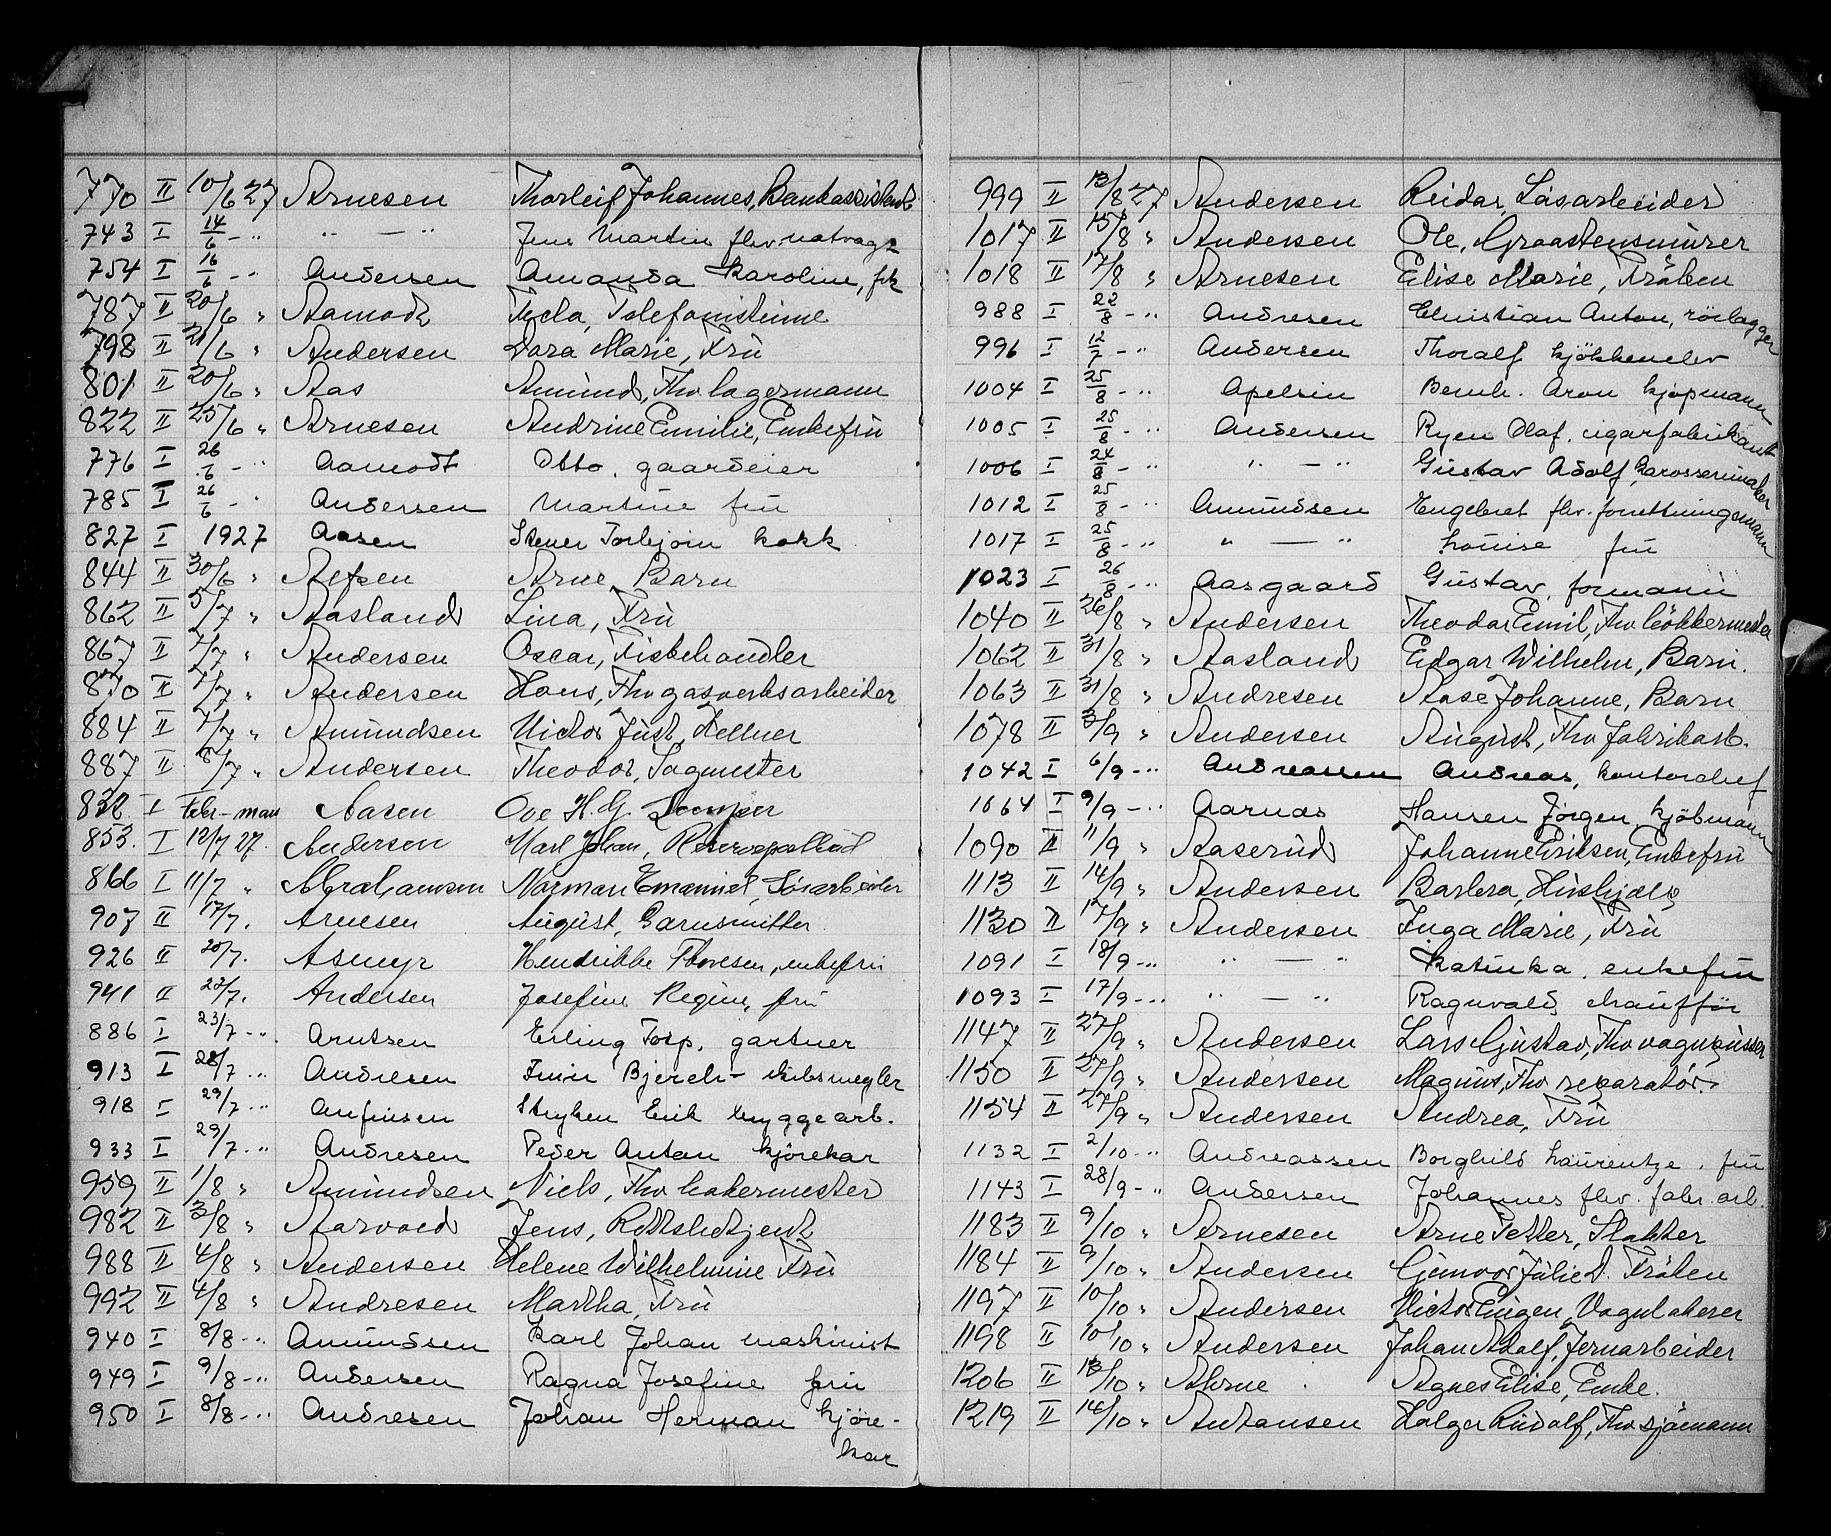 770 II 10/6 27 Arnesen Thorleif Johannes, Bankassistent
743 I 14/6 - " " — " Jens Martin fhv. natvagt
754 I 16/6 - " Andersen Amanda Karoline, frk
787 II 20/6 " Aamodt Tecla, Telefonistinne
798 II 21/6 " Andersen Dora Marie, Frü
801 II 20/6 " Aas Amünd, Fhv lagermann
822 II 25/6 " Arnesen Andrine Emilie, Enkefrü
776 I 26/6 - " Aamodt Otto, gaardeier
785 I 26/6 - " Andersen Martine frü
827 I 1927 Aasen Torbjørn kokk
844 II 30/6 " Alfsen Arne, Barn
862 II 5/7 " Aasland Lina, Frü
867 II 7/7 " Andersen Oscar, Fiskehandler
870 II 7/7 " Andersen Hans, Fhv gasverksarbeider
884 II 7/7 " Amündsen Victor Jüst, Kellner
887 II 8/7 " Andersen Theodor, Sagmester
832 I Febr - Aasen Ove H. G.
853. I 12/7 27. Andersen Karl Johan,
866 I 11/7 " Abrahamsen Norman Emanuel,
907 II 17/7. Arnesen August,
926 II 20/7. Asmyr Hendrikke Thoresen, enkefrü
941 II 22/7. Andersen Josefine Regine, frü
886 I 23/7 - " Arntsen Erling Torp, gartner
913 I 28/7 - " Andresen Bjerch - skibsmegler
918 I 29/7 - " Anfinsen Erik bryggearb.
933 I 29/7 - " Andresen Peder Anton kjörekar
959 II 1/8 " Amündsen Niels, Fhv bakermester
982 II 3/8 " Aarvold Jens, Rettsbetjent
988 II 4/8 " Andersen Helene Wilhelmine Frü
992 II 4/8 " Andresen Martha, Frü
940 I 8/8 - " Amundsen Karl Johan maskinist
949 I 9/8 - " Andersen Ragna Josefine frü
950 I 8/8 - " Andresen Johan Herman kjöre-
kar
999 II 13/8 27 Andersen Reidar, Løsarbeider
1017 II 15/8 " Andersen Ole, Graastensmürer
1018 II 17/8 " Arnesen Elise Marie, Fröken
988 I 22/8 - " Andresen Christian Anton, rörlegger
996 I 12/7 - " Andersen Thoralf kjökkenelev
1004 I 25/8 - " Apelsin Bernh. Aron kjøpmann
1005 I 25/8 - " Andersen Ryen Olaf. cigarfabrikant
1006 I 24/8 - " " — " Güstav Adolf, karosserimaker
1012 I 25/8 - " Amündsen Engebret fhv. forretningsmann
1017 I 25/8 - " " — " Louise frü
1023 I 26/8 - " Aasgaard Güstav, formann
1040 II 26/8 " Andersen Theodor Emil, Fhv bökkermester
1062 II 31/8 " Aasland Edgar Wilhelm, Barn.
1063 II 31/8 " Andresen Aase Johanne, Barn
1078 II 3/9 " Andersen Aügüst, Fhv fabrikarb.
1042 I 6/9 - " Andreassen Andreas, kontorchef
1064 I 9/9 - " Aarnas Hansen Jörgen, kjöbmann
1090 II 11/9 " Aaserüd Johanne Eriksen, Enkefrü
1113 II 14/9 " Andersen Barbra, Hüshjælp
1130 II 17/9 " Andersen Inga Marie, Frü
1091 I 18/9 - " " — " Katinka. enkefrü
1093 I 17/9 - " " — " Ragnvald chauffør
1147 II 27/9 " Andersen Lars Gustav, Fhv vognpüsser
1150 II 27/9 " Andersen Magnüs, Fhv reparatör
1154 II 27/9 " Andersen Andrea, Frü
1132 I 2/10 - " Andreassen Borghild Laurentze. frü
1143 I 28/9 - " Andersen Johannes fhv. fabr. arb.
1183 II 9/10 " Arnesen Arne Petter, Slakter
1184 II 9/10 " Andersen Günvor Jülie D. Fröken
1197 II 10/10 " Andersen Victor Eügen, Vognlakerer
1198 II 10/10 " Andersen Johan Adolf, Jernarbeider
1206 II 13/10 " Ahrne Agnes Elise, Enke.
1219 II 14/10 " Antonsen Holger Rüdolf, Fhv sjömann